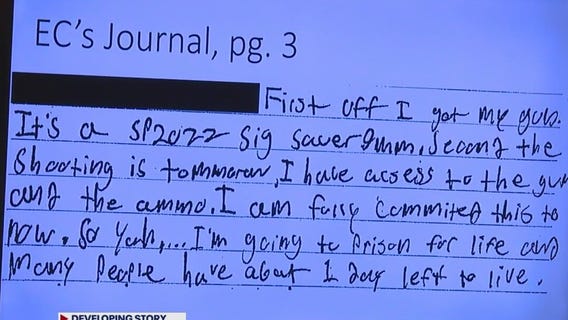 EC's Journal, pg. 3
First off I got my gun.
It's a SP2022 Sig Sauer 9mm. Second the
Shooting is tommorow, I have access to the gun
and the ammo. I am fully commited this to
now. So Yah,... I'm going to Prison for life and
Many People have about 1 day left to live.
DEVELOPING STORY